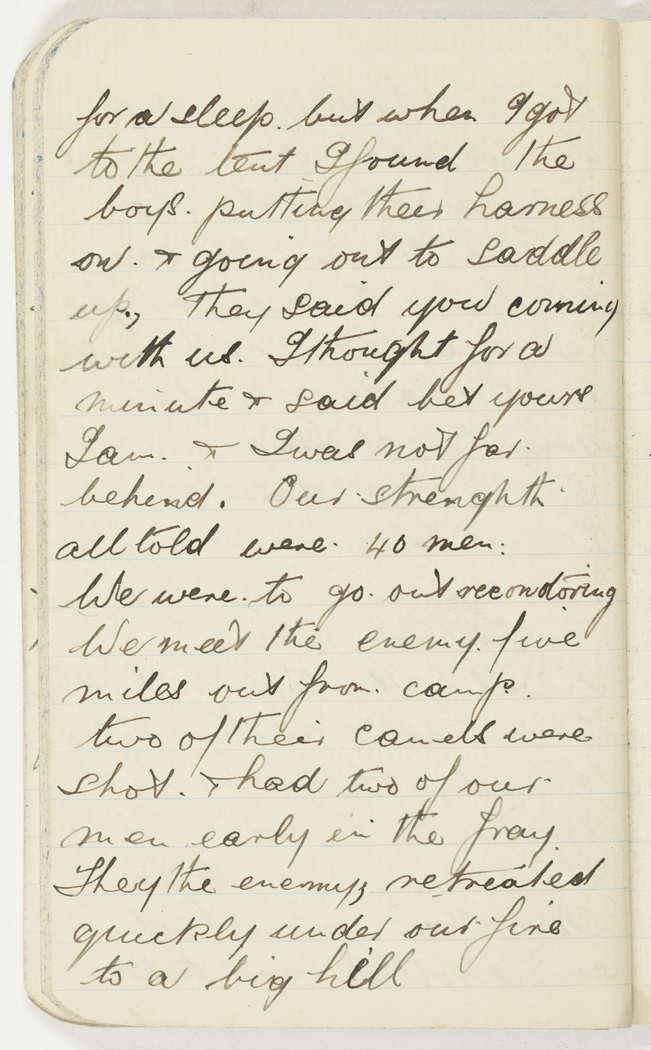 for a sleep. but when I got
to the tent I found the
boys. putting their harness
on. & going out to saddle
up., They said you coming
with us. I thought for a
minute & said bet yours
I am. & I was not far.
behind. Our strenghth
all told were. 40 men.
We were. to go. out recondoring
We meet the enemy. five
miles out from. camp.
two of their camels were
shot. & had two of our
men early in the fray.
They the enemy, retreated
quickly under our fire
to a big hill